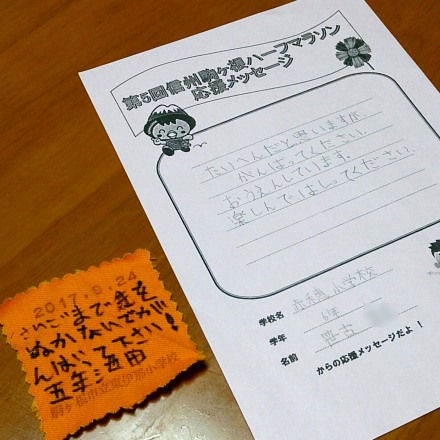 第5回信州駒ヶ根ハーフマラソン
応援メッセージ
たいへんだと思いますが
がんばってください。
おうえんしています。
楽しんではしってください。
学校名 赤穂小学校
学年 6年
名前
からの応援メッセージだよ！
2017.9.24
さいごまで気を
ぬかないでが
んばって下さい！
五年:酒田
駒ヶ根市立東伊那小学校